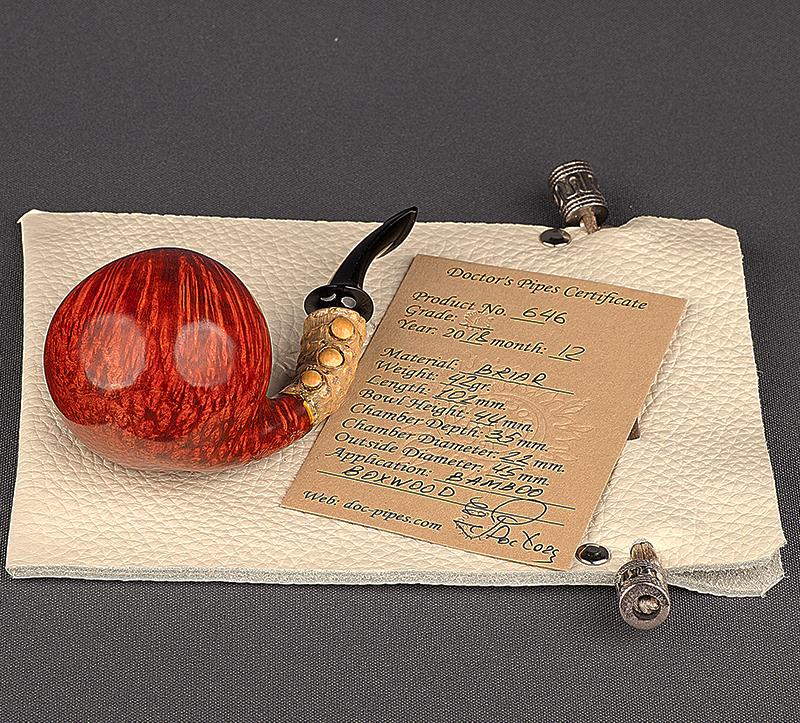 Doctor's Pipes Certificate
Product No. 646
Grade:
Year: 2018 month: 12
Material: BRIAR
Weight: 42 gr.
Length: 101 mm.
Bowl Height: 44 mm.
Chamber Depth: 35 mm.
Chamber Diameter: 22 mm.
Outside Diameter: 45 mm.
Application: BAMBOO
BOXWOOD
Web: doc-pipes.com